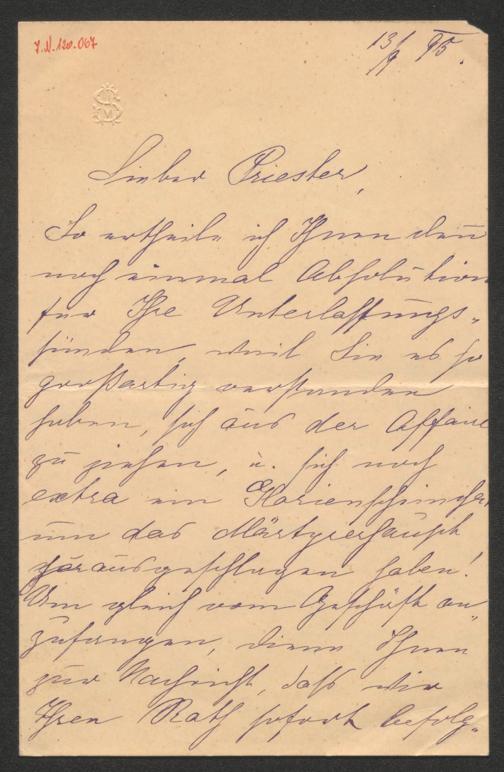 J.N. 120.067
13/9 95.
Lieber Priester,
So ertheile ich Ihnen denn
noch einmal Absolution
für Ihre Unterlassungs-
sünden, weil Sie es so
großartig verstanden
haben, sich aus der Affaire
zu ziehen, u. sich noch
extra ein Glorienscheinchen
um das Märtyrerhaupt
herausgeschlagen haben!
Um gleich vom Geschäft an-
zufangen, diene Ihnen
zur Nachricht, daß wir
Ihren Rath sofort befolg-